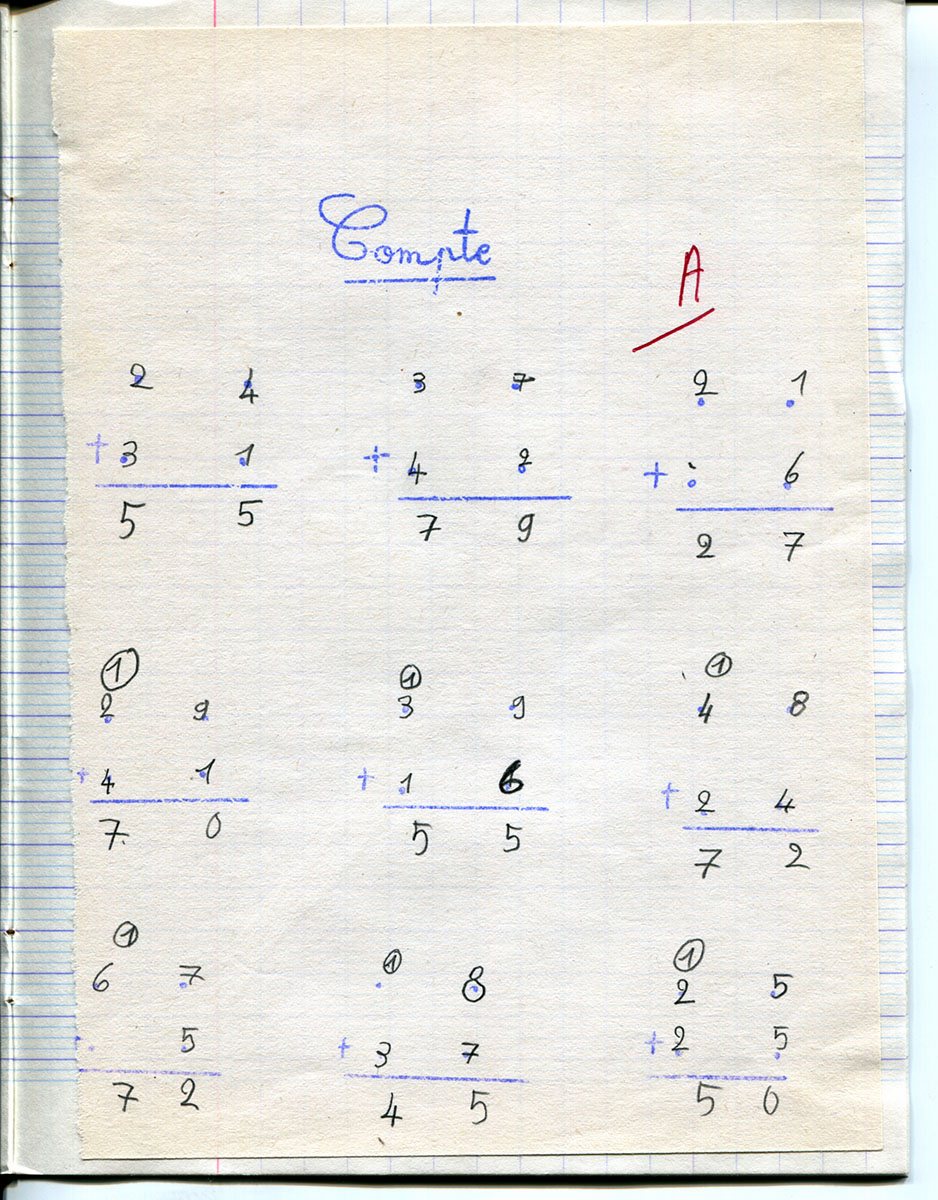 Compte
A
2 4 3 7 2 1
+ 3 1 + 4 2 + 6
5 5 7 9 2 7
1 1 1
2 9 3 9 4 8
+ 4 1 + 1 6 + 2 4
7 0 5 5 7 2
1 1 1
6 7 8 2 5
+ 5 + 3 7 + 2 5
7 2 4 5 5 0